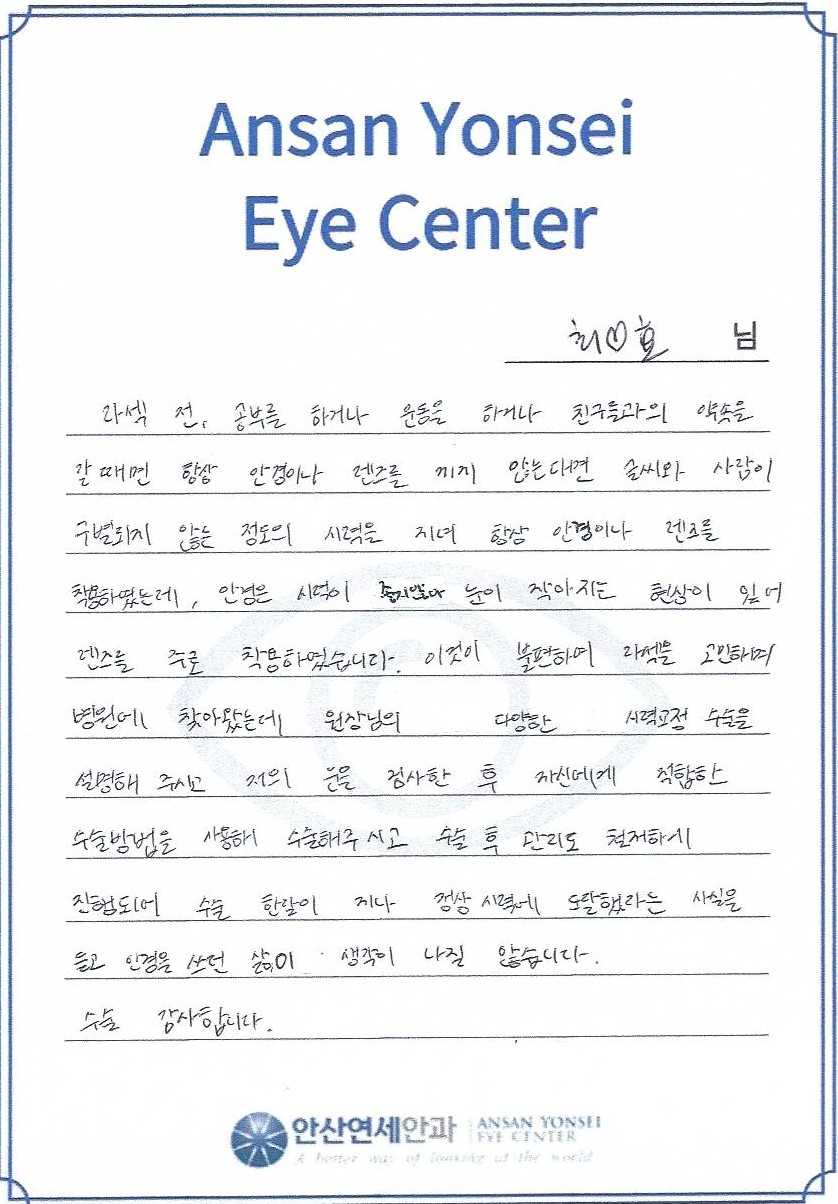 Ansan Yonsei
Eye Center
최♡호 님
라섹 전, 공부를 하거나 운동을 하거나 친구들과의 약속을
갈때면 항상 안경이나 렌즈를 끼지 않는다면 글씨와 사람이
구별되지 않는 정도의 시력을 지녀 항상 안경이나 렌즈를
착용하였는데, 안경은 시력이 눈이 작아지는 현상이 있어
렌즈를 주로 착용하였습니다. 이것이 불편하여 라섹을 고민하며
병원에 찾아왔는데 원장님의 다양한 시력교정 수술을
설명해 주시고 저의 눈을 검사한 후 자신에게 적합한
수술방법을 사용해 수술해주시고 수술 후 관리도 철저하게
진행되어 수술 한달이 지나 정상 시력에 도달했라는 사실을
듣고 안경을 쓰던 삶이 생각이 나질 않습니다.
수술 감사합니다.
안산연세안과 ANSAN YONSEI
EYE CENTER
A better way of looking at the world